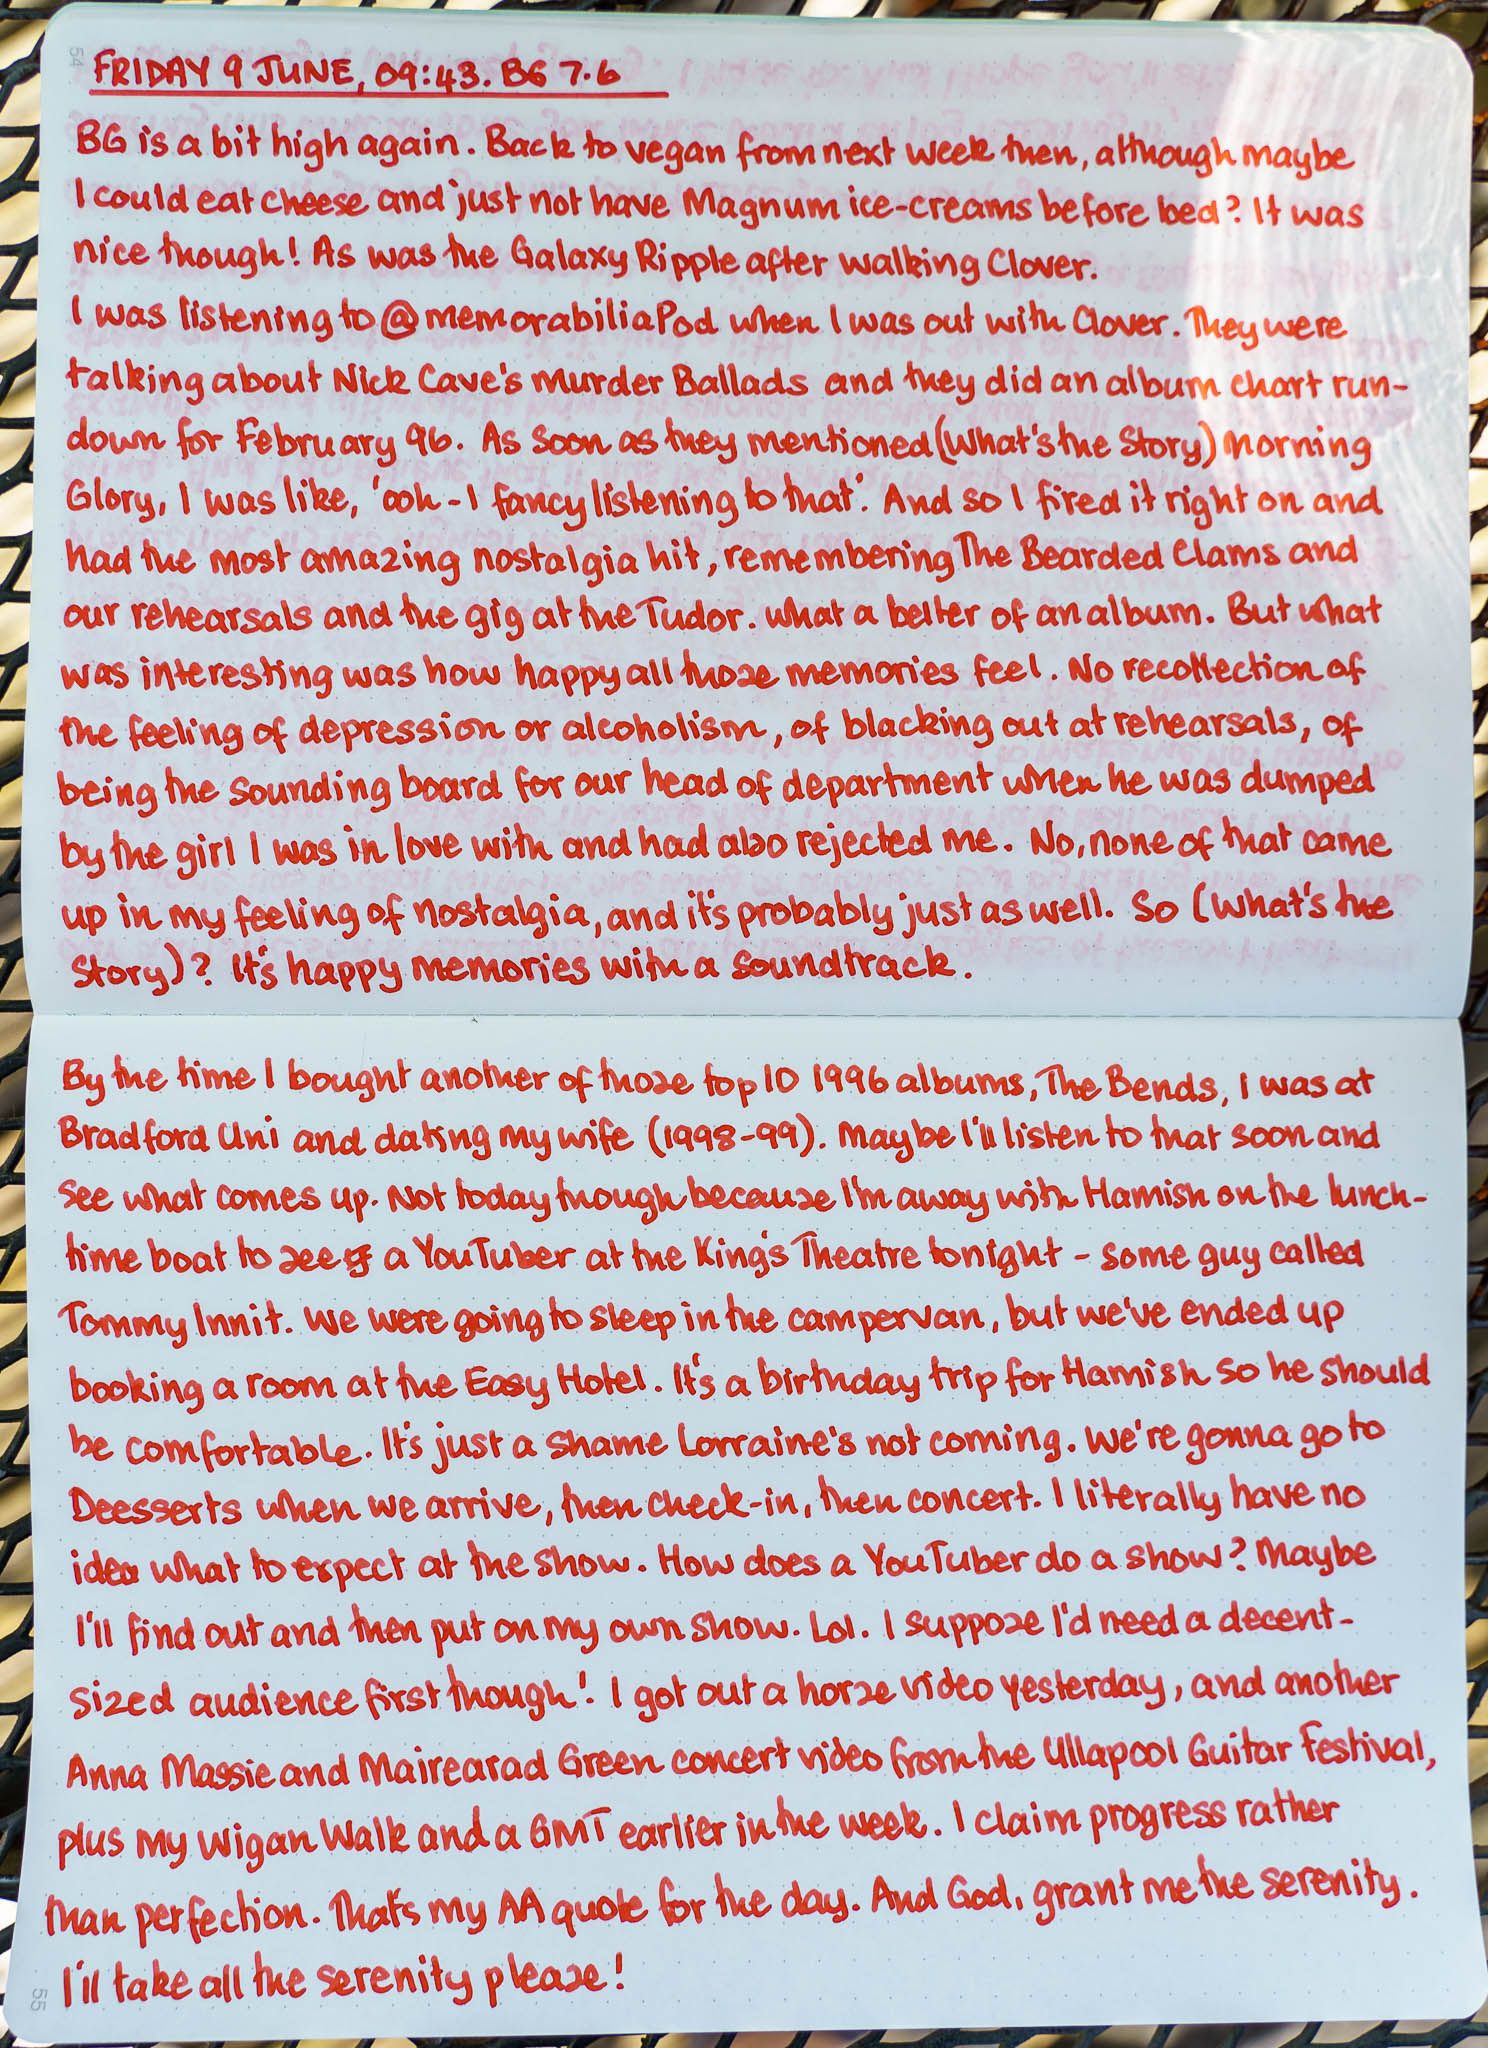 54
FRIDAY 9 JUNE, 09:43. BG 7.6
BG is a bit high again. Back to vegan from next week then, although maybe
I could eat cheese and just not have Magnum ice-creams before bed? It was
nice though! As was the Galaxy Ripple after walking Clover.
I was listening to @memorabiliaPod when I was out with Clover. They were
talking about Nick Cave's Murder Ballads and they did an album chart run-
down for February 96. As soon as they mentioned (What's the Story) Morning
Glory, I was like, 'ooh - I fancy listening to that'. And so I fired it right on and
had the most amazing nostalgia hit, remembering The Bearded Clams and
our rehearsals and the gig at the Tudor. What a belter of an album. But what
was interesting was how happy all those memories feel. No recollection of
the feeling of depression or alcoholism, of blacking out at rehearsals, of
being the sounding board for our head of department when he was dumped
by the girl I was in love with and had also rejected me. No, none of that came
up in my feeling of nostalgia, and it's probably just as well. So (What's the
Story)? It's happy memories with a soundtrack.
By the time I bought another of those top 10 1996 albums, The Bends, I was at
Bradford Uni and dating my wife (1998-99). Maybe I'll listen to that soon and
see what comes up. Not today though because I'm away with Hamish on the lunch-
time boat to see a YouTuber at the King's Theatre tonight - some guy called
Tommy Innit. We were going to sleep in the campervan, but we've ended up
booking a room at the Easy Hotel. It's a birthday trip for Hamish so he should
be comfortable. It's just a shame Lorraine's not coming. We're gonna go to
Deesserts when we arrive, then check-in, then concert. I literally have no
idea what to expect at the show. How does a YouTuber do a show? Maybe
I'll find out and then put on my own show. Lol. I suppose I'd need a decent-
sized audience first though! I got out a horse video yesterday, and another
Anna Massie and Mairearad Green concert video from the Ullapool Guitar Festival,
plus my Wigan Walk and a GMT earlier in the week. I claim progress rather
than perfection. That's my AA quote for the day. And God, grant me the serenity.
I'll take all the serenity please!
55